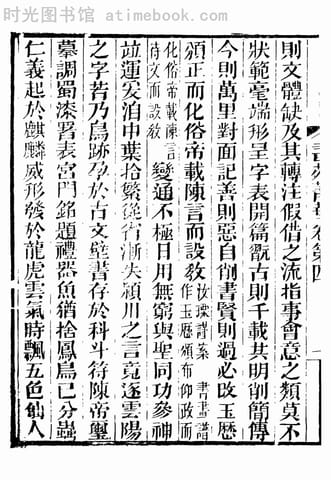 时光书馆 atimebook.com
卷第四
則文體缺及其轉注假借之流指事會意之類莫不
狀範毫端形呈字表開篇翫古則千載共明削簡傳
今則萬里對面記善則惡自削書賢則過必改玉歷
頒正而化俗帝載陳言而設敎
謹案書畫譜
作玉歷頒布仰政而
化俗帝載陳言
待文而設敎
變通不極日用無窮與聖同功參神
竝運爰洎中葉拾繁從省漸失潁川之言竟逐雲陽
之字若乃鳥跡孕於古文壁書存於科斗符陳帝璽
摹調蜀漆署表宮門銘題禮器魚猶捨鳳鳥已分蟲
仁義起於麒麟威形發於龍虎雲氣時飄五色仙人